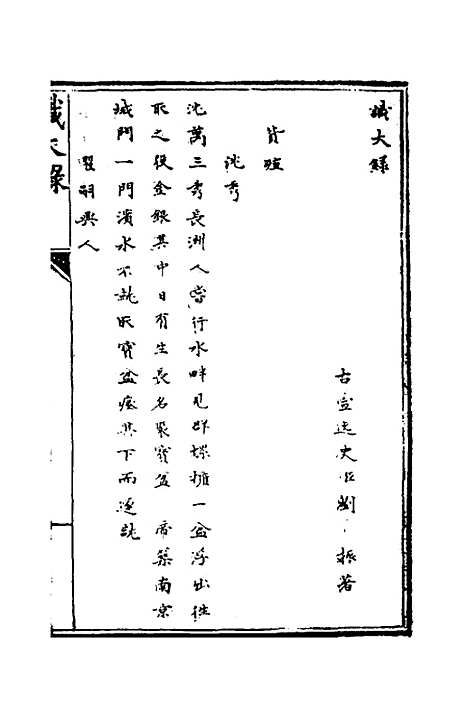 識大錄
古宣逸史臣劉振著
貨殖
沈秀
沈萬三秀長洲人嘗行水畔見群蟻擁一盆浮出往
取之投金銀其中日有生長名聚寶盆 帝築南京
城門一門濱水不就取寶盆瘞其下而遂就
翟嗣興人
識大錄